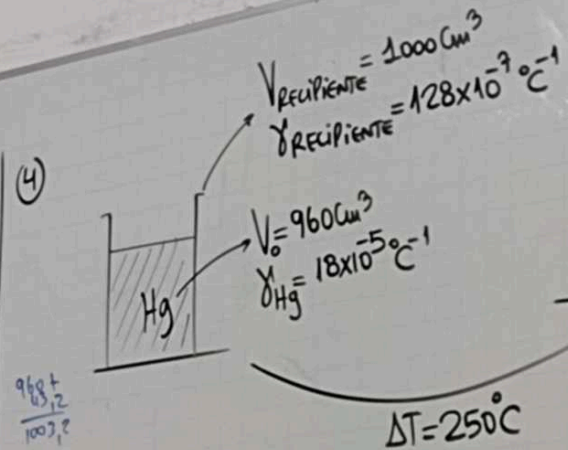 V_RECIPIENTE = 1000 Cm³
γ_RECIPIENTE = 128×10⁻⁷ °C⁻¹
④
V₀ = 960 Cm³
γ_Hg = 18×10⁻⁵ °C⁻¹
Hg
43,2
1003,2
ΔT = 250°C